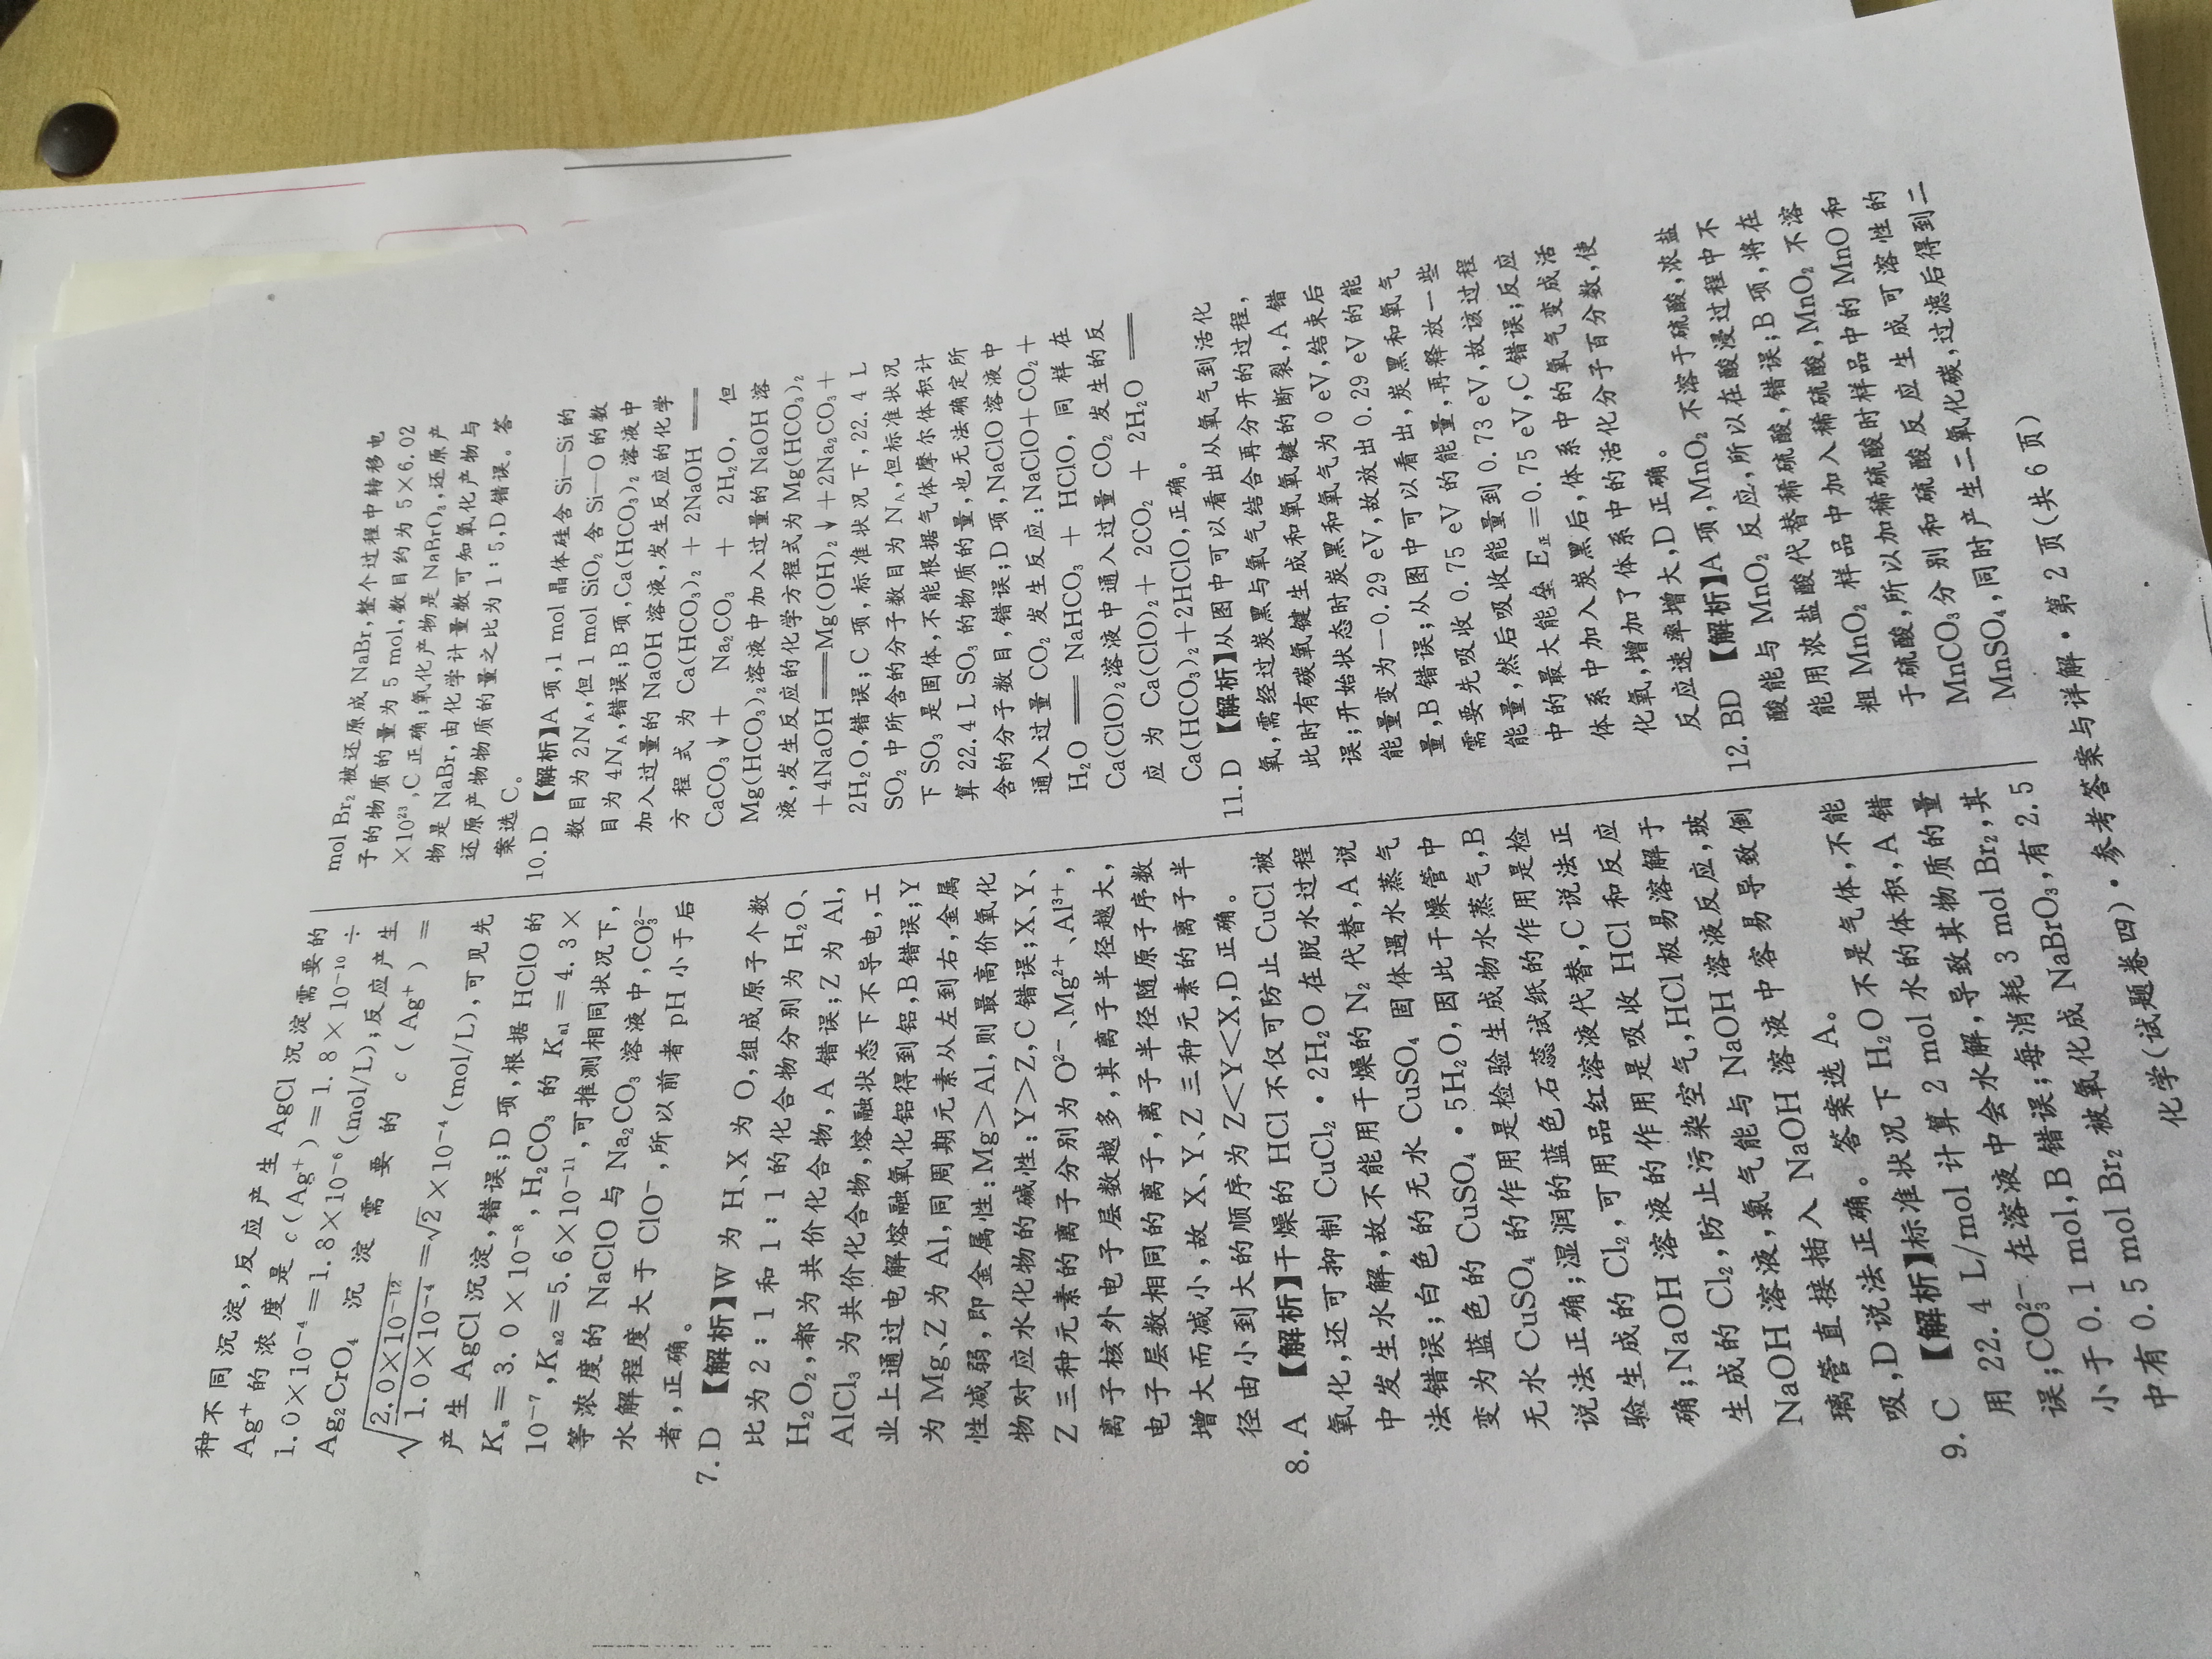 种不同沉淀,反应产生 AgCl 沉淀需要的
Ag⁺的浓度是 c(Ag⁺)=1.8×10⁻¹⁰÷
1.0×10⁻⁴=1.8×10⁻⁶(mol/L);反应产生
Ag₂CrO₄ 沉淀需要的 c(Ag⁺)=
√(2.0×10⁻¹²/1.0×10⁻⁴)=√2×10⁻⁴(mol/L),可见先
产生 AgCl 沉淀,错误;D 项,根据 HClO 的
Kₐ=3.0×10⁻⁸,H₂CO₃ 的 Kₐ₁=4.3×
10⁻⁷,Kₐ₂=5.6×10⁻¹¹,可推测相同状况下,
等浓度的 NaClO 与 Na₂CO₃ 溶液中,CO₃²⁻
水解程度大于 ClO⁻,所以前者 pH 小于后
者,正确。
7.D 【解析】W 为 H、X 为 O,组成原子个数
比为 2:1 和 1:1 的化合物分别为 H₂O、
H₂O₂,都为共价化合物,A 错误;Z 为 Al,
AlCl₃ 为共价化合物,熔融状态下不导电,工
业上通过电解熔融氧化铝得到铝,B 错误;Y
为 Mg、Z 为 Al,同周期元素从左到右,金属
性减弱,即金属性:Mg>Al,则最高价氧化
物对应水化物的碱性:Y>Z,C 错误;X、Y、
Z 三种元素的离子分别为 O²⁻、Mg²⁺、Al³⁺,
离子核外电子层数越多,其离子半径越大,
电子层数相同的离子,离子半径随原子序数
增大而减小,故 X、Y、Z 三种元素的离子半
径由小到大的顺序为 Z<Y<X,D 正确。
8.A 【解析】干燥的 HCl 不仅可防止 CuCl 被
氧化,还可抑制 CuCl₂·2H₂O 在脱水过程
中发生水解,故不能用干燥的 N₂ 代替,A 说
法错误;白色的无水 CuSO₄ 固体遇水蒸气
变为蓝色的 CuSO₄·5H₂O,因此干燥管中
无水 CuSO₄ 的作用是检验生成物水蒸气,B
说法正确;湿润的蓝色石蕊试纸的作用是检
验生成的 Cl₂,可用品红溶液代替,C 说法正
确;NaOH 溶液的作用是吸收 HCl 和反应
生成的 Cl₂,防止污染空气,HCl 极易溶解于
NaOH 溶液,氯气能与 NaOH 溶液反应,玻
璃管直接插入 NaOH 溶液中容易导致倒
吸,D 说法正确。答案选 A。
9.C 【解析】标准状况下 H₂O 不是气体,不能
用 22.4 L/mol 计算 2 mol 水的体积,A 错
误;CO₃²⁻ 在溶液中会水解,导致其物质的量
小于 0.1 mol,B 错误;每消耗 3 mol Br₂,其
中有 0.5 mol Br₂ 被氧化成 NaBrO₃,有 2.5
mol Br₂ 被还原成 NaBr,整个过程中转移电
子的物质的量为 5 mol,数目约为 5×6.02
×10²³,C 正确;氧化产物是 NaBrO₃,还原产
物是 NaBr,由化学计量数可知氧化产物与
还原产物物质的量之比为 1:5,D 错误。答
案选 C。
10.D 【解析】A 项,1 mol 晶体硅含 Si—Si 的
数目为 2Nₐ,但 1 mol SiO₂ 含 Si—O 的数
目为 4Nₐ,错误;B 项,Ca(HCO₃)₂ 溶液中
加入过量的 NaOH 溶液,发生反应的化学
方程式为 Ca(HCO₃)₂ + 2NaOH ══
CaCO₃↓ + Na₂CO₃ + 2H₂O,但
Mg(HCO₃)₂溶液中加入过量的 NaOH 溶
液,发生反应的化学方程式为 Mg(HCO₃)₂
+4NaOH══Mg(OH)₂↓+2Na₂CO₃+
2H₂O,错误;C 项,标准状况下,22.4 L
SO₂ 中所含的分子数目为 Nₐ,但标准状况
下 SO₃ 是固体,不能根据气体摩尔体积计
算 22.4 L SO₃ 的物质的量,也无法确定所
含的分子数目,错误;D 项,NaClO 溶液中
通入过量 CO₂ 发生反应:NaClO+CO₂+
H₂O══NaHCO₃+HClO,同样在
Ca(ClO)₂溶液中通入过量 CO₂ 发生的反
应为 Ca(ClO)₂+2CO₂+2H₂O══
Ca(HCO₃)₂+2HClO,正确。
11.D 【解析】从图中可以看出从氧气到活化
氧,需经过炭黑与氧气结合再分开的过程,
此时有碳氧键生成和氧氧键的断裂,A 错
误;开始状态时炭黑和氧气为 0 eV,结束后
能量变为-0.29 eV,故放出 0.29 eV 的能
量,B 错误;从图中可以看出,炭黑和氧气
需要先吸收 0.75 eV 的能量,再释放一些
能量,然后吸收能量到 0.73 eV,故该过程
中的最大能垒 E正=0.75 eV,C 错误;反应
体系中加入炭黑后,体系中的氧气变成活
化氧,增加了体系中的活化分子百分数,使
反应速率增大,D 正确。
12.BD 【解析】A 项,MnO₂ 不溶于硫酸,浓盐
酸能与 MnO₂ 反应,所以在酸浸过程中不
能用浓盐酸代替稀硫酸,错误;B 项,将在
粗 MnO₂ 样品中加入稀硫酸,MnO₂ 不溶
于硫酸,所以加稀硫酸时样品中的 MnO 和
MnCO₃ 分别和硫酸反应生成可溶性的
MnSO₄,同时产生二氧化碳,过滤后得到二
化学(试题卷四)·参考答案与详解·第 2 页(共 6 页)